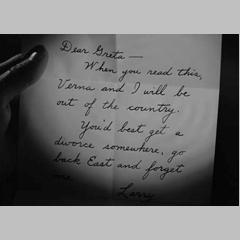 Dear Greta —
When you read this,
Verna and I will be
out of the country.
You'd best get a
divorce somewhere, go
back East and forget
me.
Larry